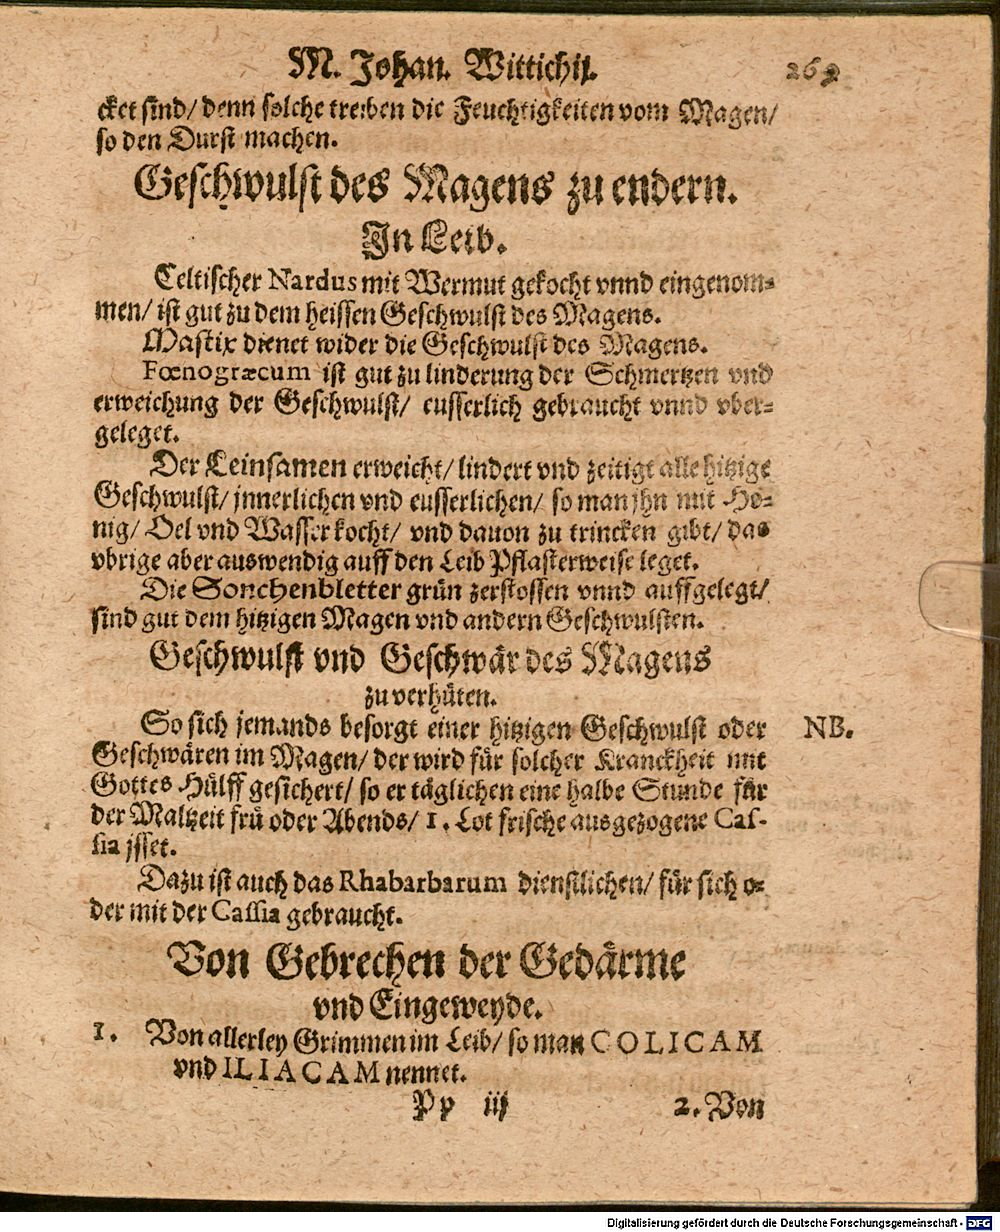 M. Johan. Wittichij. 269
cket sind/ denn solche treiben die Feuchtigkeiten vom Magen/
so den Durst machen.
Geschwulst des Magens zu endern.
Jn Leib.
Celtischer Nardus mit Wermut gekocht vnnd eingenom-
men/ ist gut zu dem heissen Geschwulst des Magens.
Mastix dienet wider die Geschwulst des Magens.
Fœnogræcum ist gut zu linderung der Schmertzen vnd
erweichung der Geschwulst/ eusserlich gebraucht vnnd vber-
geleget.
Der Leinsamen erweicht/ lindert vnd zeitigt alle hitzige
Geschwulst/ jnnerlichen vnd eusserlichen/ so man jhn mit Ho-
nig/ Oel vnd Wasser kocht/ vnd dauon zu trincken gibt/ das
vbrige aber auswendig auff den Leib Pflasterweise leget.
Die Sonchenbletter grün zerstossen vnnd auffgelegt/
sind gut dem hitzigen Magen vnd andern Geschwulsten.
Geschwulst vnd Geschwär des Magens
zu verhüten.
So sich jemands besorgt einer hitzigen Geschwulst oder NB.
Geschwären im Magen/ der wird für solcher Kranckheit mit
Gottes Hülff gesichert/ so er täglichen eine halbe Stunde für
der Maltzeit frü oder Abends/ 1. Lot frische ausgezogene Cas-
sia jsset.
Dazu ist auch das Rhabarbarum dienstlichen/ für sich o-
der mit der Cassia gebraucht.
Von Gebrechen der Gedärme
vnd Eingeweyde.
1. Von allerley Grimmen im Leib/ so man COLICAM
vnd ILIACAM nennet.
Pp iij 2. Von
Digitalisierung gefördert durch die Deutsche Forschungsgemeinschaft - DFG